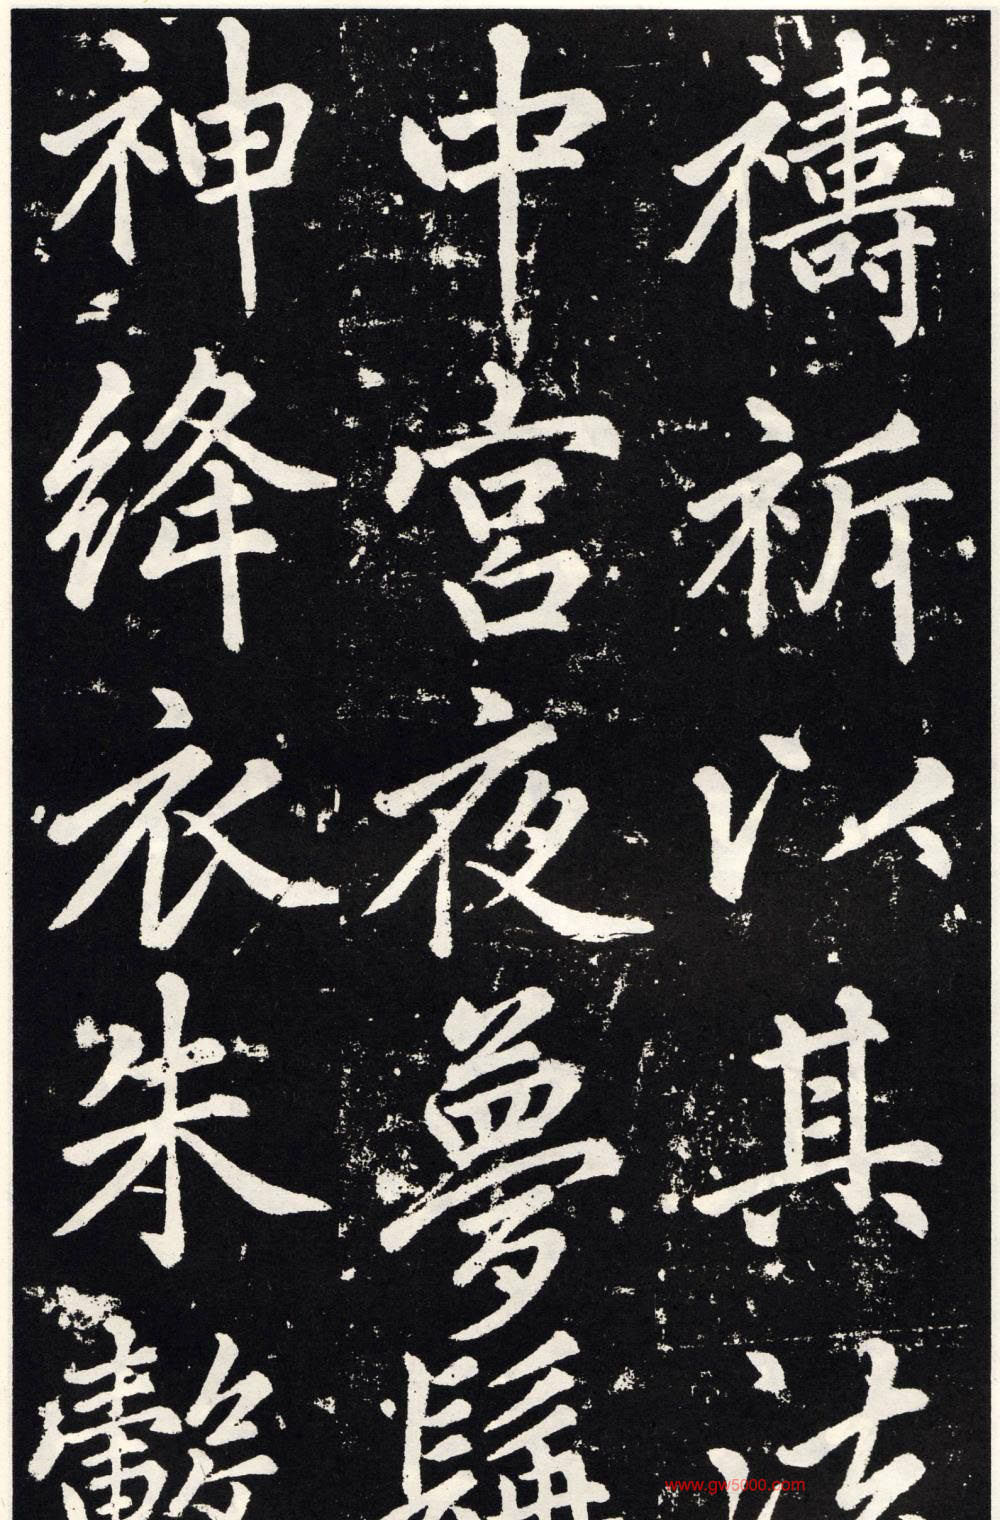 禱祈以其法
中宮夜夢髯
神絳衣朱
www.gw5000.com